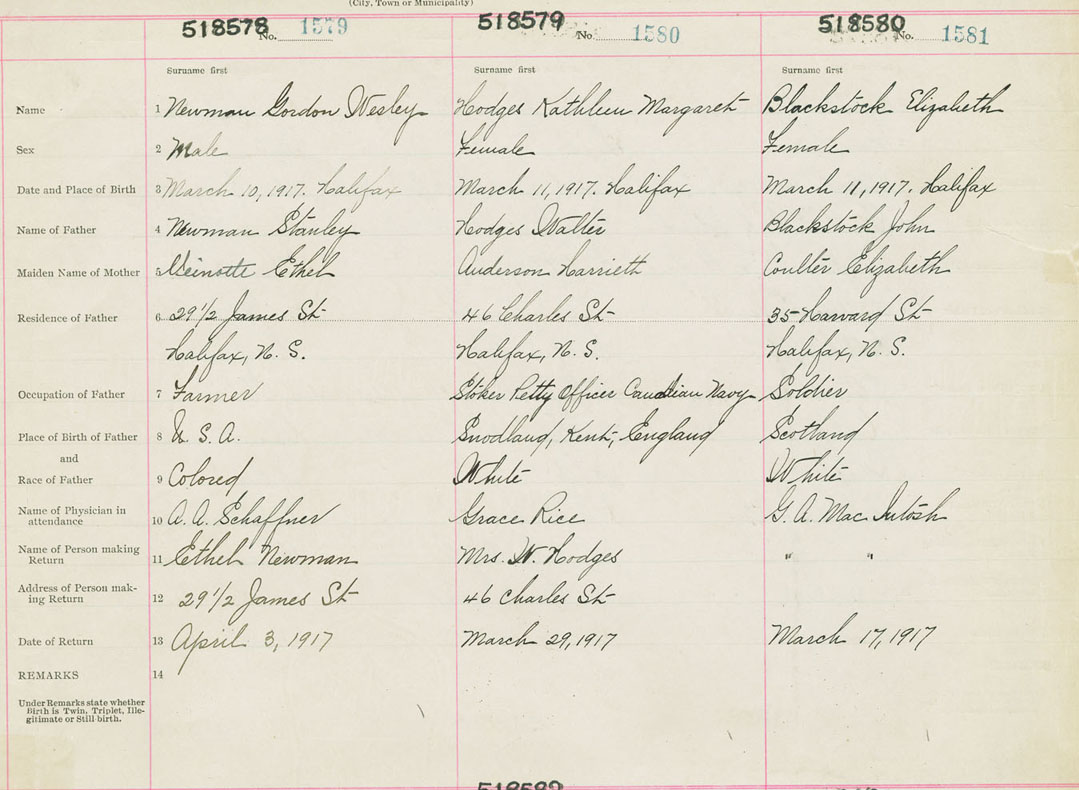 (City, Town or Municipality)
518578 No. 1579 518579 No. 1580 518580 No. 1581
Surname first Surname first Surname first
Name 1 Newman Gordon Wesley Hodges Kathleen Margaret Blackstock Elizabeth
Sex 2 Male Female Female
Date and Place of Birth 3 March 10, 1917. Halifax March 11, 1917. Halifax March 11, 1917. Halifax
Name of Father 4 Newman Stanley Hodges Walter Blackstock John
Maiden Name of Mother 5 Ethel Anderson Harrieth Coulter Elizabeth
Residence of Father 6 29 1/2 James St 46 Charles St 35 Harvard St
Halifax, N. S. Halifax, N. S. Halifax, N. S.
Occupation of Father 7 Farmer Stoker Petty Officer Canadian Navy Soldier
Place of Birth of Father 8 U. S. A. Snodland, Kent, England Scotland
and
Race of Father 9 Colored White White
Name of Physician in
attendance 10 A. A. Schaffner Grace Rice G. A. Mac Intosh
Name of Person making
Return 11 Ethel Newman Mrs. W. Hodges " "
Address of Person mak-
ing Return 12 29 1/2 James St 46 Charles St
Date of Return 13 April 3, 1917 March 29, 1917 March 17, 1917
REMARKS 14
Under Remarks state whether
Birth is Twin, Triplet, Ille-
gitimate or Still birth.